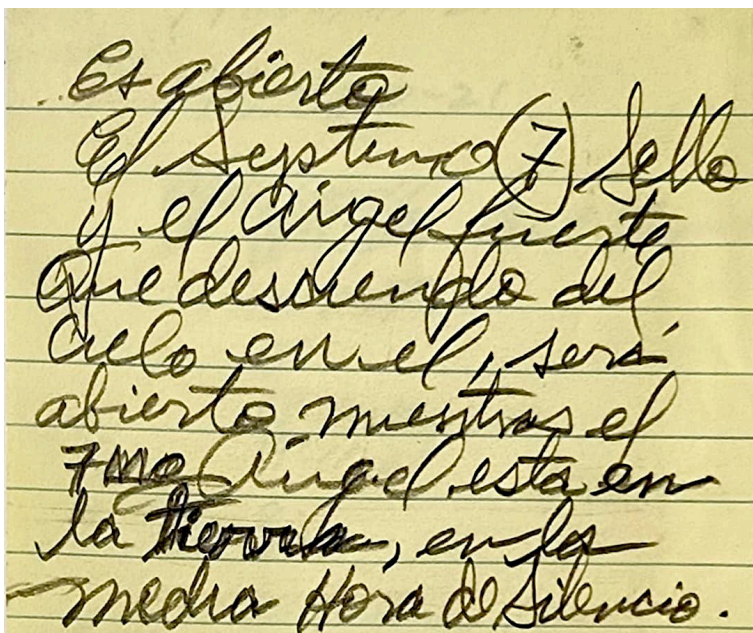 Es abierto
El Septimo (7) Sello
y el Angel fuerte
Que desciende del
Cielo en el, será
abierto mientras el
7mo Angel esta en
la tierra, en la
media Hora de Silencio.